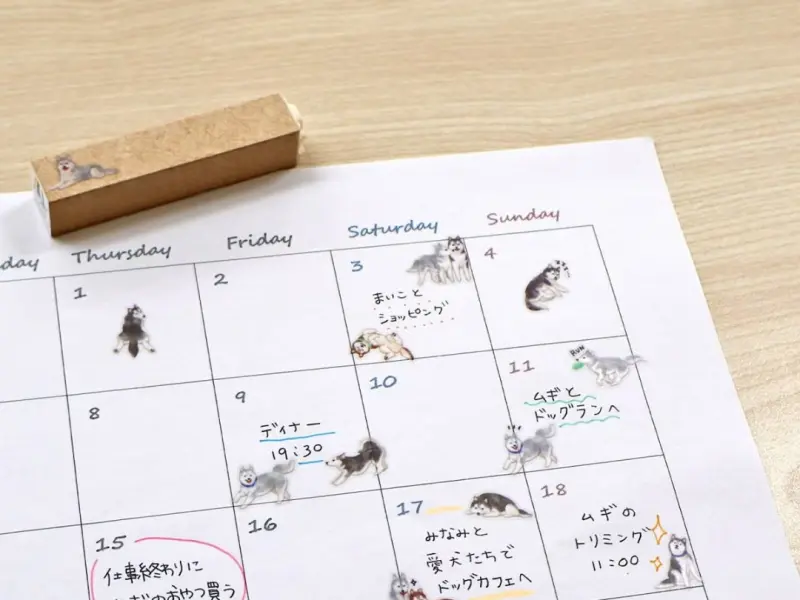 day
Thursday
Friday
Saturday
Sunday
1
2
3
まいこと
ショッピング
4
8
9
ディナー
19:30
10
11
RUN
ムギと
ドッグランへ
15
仕事終わりに
のおやつ買う
16
17
みなみと
愛犬たちで
ドッグカフェへ
18
ムギの
トリミング
11:00